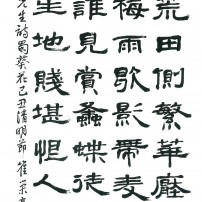 荒田側繁華壓
梅雨歇影帶麥
誰見賞蠭蝶徒
生地賤堪恨人
先生詩蜀葵花己丑清明節 崔